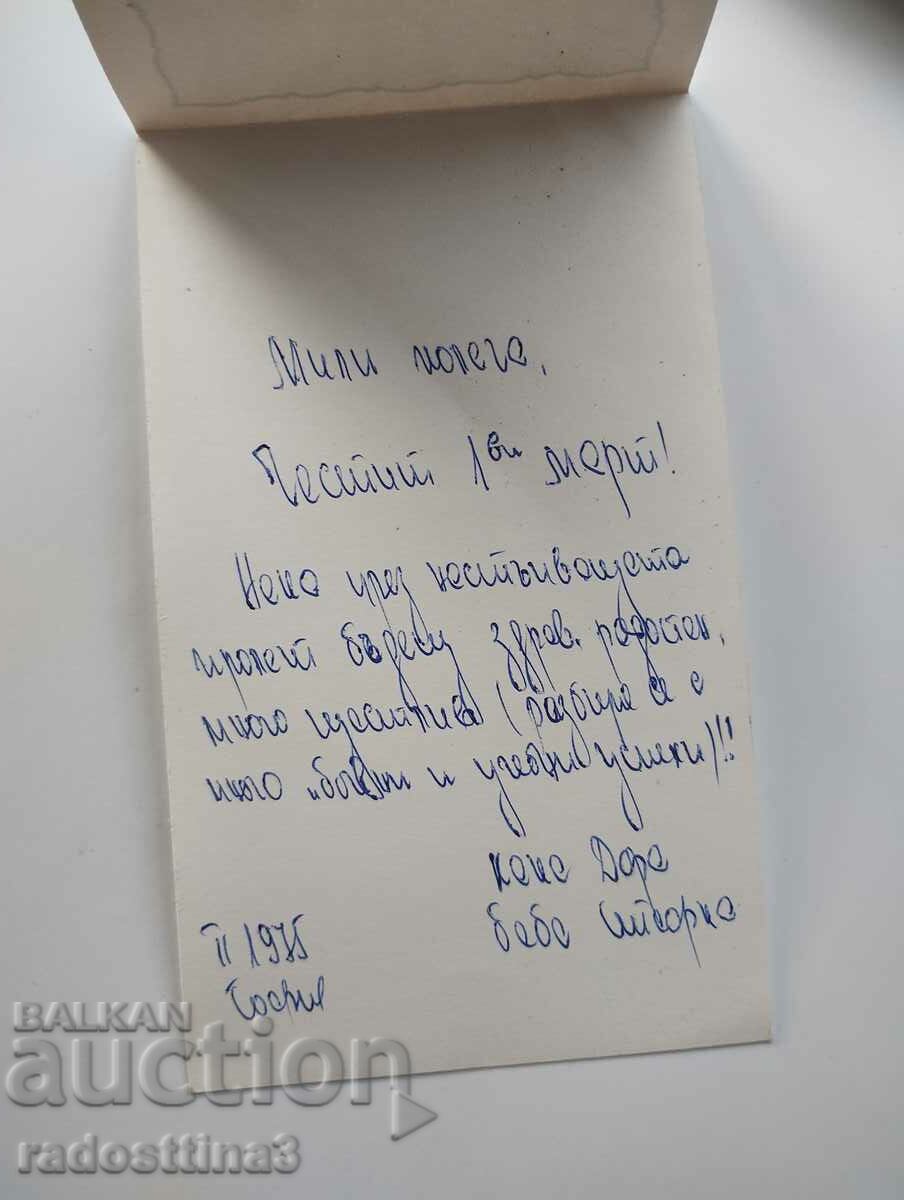 Мили колега,
Честит 1ви март!
Нека чрез настъпващата
пролет бъдеш здрав, радостен,
много щастлив (разбира се с
много и учебни успехи)!!
кака Дора
баба Ситорка
II 1975
София
BALKAN
auction
radosttina3